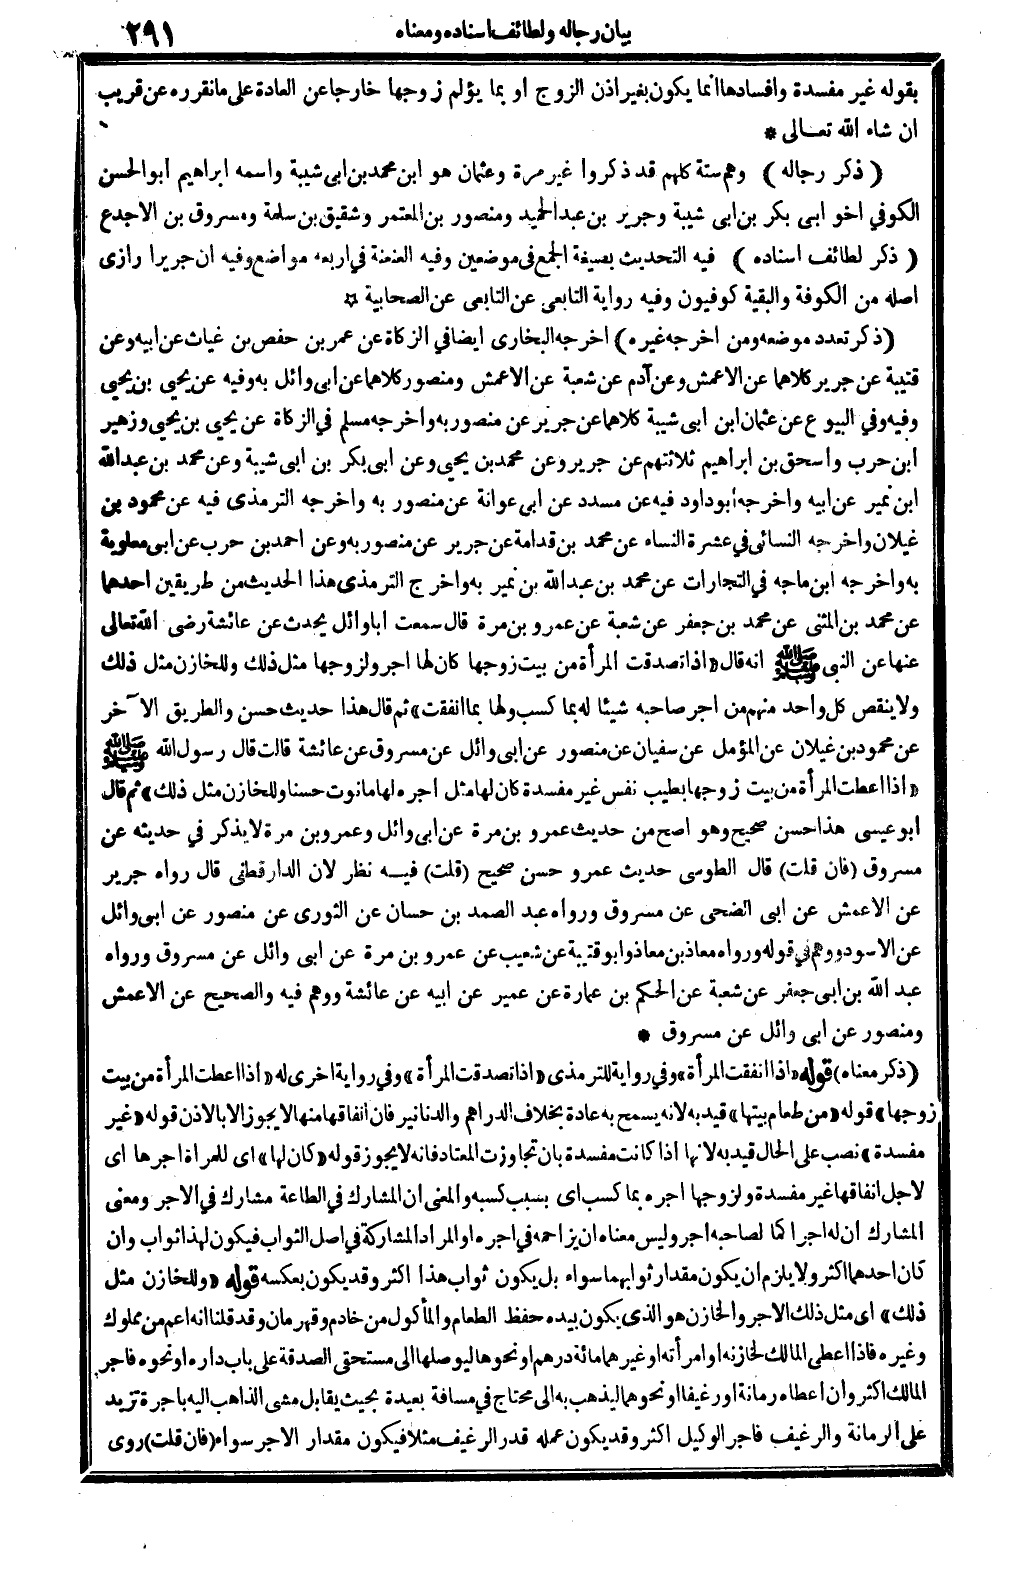 بيان رجاله ولطائف اسناده ومعناه
٢٩١
بقوله غير مفسدة وافسادها انما يكون بغير اذن الزوج او بما يؤلم زوجها خارجا عن العادة على ما نقرره عن قريب
ان شاء الله تعالى *
( ذكر رجاله ) وهم ستة كلهم قد ذكروا غير مرة وعثمان هو ابن محمد بن ابى شيبة واسمه ابراهيم ابو الحسن
الكوفي اخو ابى بكر بن ابى شيبة وجرير بن عبد الحميد ومنصور بن المعتمر وشقيق بن سلمة ومسروق بن الاجدع
( ذكر لطائف اسناده ) فيه التحديث بصيغة الجمع فى موضعين وفيه العنعنة في اربعة مواضع وفيه ان جريرا رازى
اصله من الكوفة والبقية كوفيون وفيه رواية التابعى عن التابعى عن الصحابية *
( ذكر تعدد موضعه ومن اخرجه غيره ) اخرجه البخارى ايضا في الزكاة عن عمر بن حفص بن غياث عن ابيه وعن
قتيبة عن جرير كلاهما عن الاعمش وعن آدم عن شعبة عن الاعمش ومنصور كلاهما عن ابى وائل به وفيه عن يحيى بن يحيى
وفيه وفي البيوع عن عثمان ابن ابى شيبة كلاهما عن جرير عن منصور به واخرجه مسلم في الزكاة عن يحيى بن يحيى وزهير
ابن حرب واسحق بن ابراهيم ثلاثتهم عن جرير وعن محمد بن يحيى وعن ابى بكر بن ابى شيبة وعن محمد بن عبد الله
ابن نمير عن ابيه واخرجه أبو داود فيه عن مسدد عن ابى عوانة عن منصور به واخرجه الترمذى فيه عن محمود بن
غيلان واخرجه النسائى في عشرة النساء عن محمد بن قدامة عن جرير عن منصور به وعن احمد بن حرب عن ابى معاوية
به واخرجه ابن ماجه في التجارات عن محمد بن عبد الله بن نمير به واخرج الترمذى هذا الحديث من طريقين احدهما
عن محمد بن المثنى عن محمد بن جعفر عن شعبة عن عمرو بن مرة قال سمعت ابا وائل يحدث عن عائشة رضى الله تعالى
عنها عن النبى ﷺ انه قال « اذا تصدقت المرأة من بيت زوجها كان لها اجر ولزوجها مثل ذلك وللخازن مثل ذلك
ولا ينقص كل واحد منهم من اجر صاحبه شيئا له بما كسب ولها بما انفقت » ثم قال هذا حديث حسن والطريق الآخر
عن محمود بن غيلان عن المؤمل عن سفيان عن منصور عن ابى وائل عن مسروق عن عائشة قالت قال رسول الله ﷺ
« اذا اعطت المرأة من بيت زوجها بطيب نفس غير مفسدة كان لها مثل اجره لها ما نوت حسنا وللخازن مثل ذلك » ثم قال
ابو عيسى هذا حسن صحيح وهو اصح من حديث عمرو بن مرة عن ابى وائل وعمرو بن مرة لا يذكر في حديثه عن
مسروق (فان قلت) قال الطوسى حديث عمرو حسن صحيح (قلت) فيه نظر لان الدارقطنى قال رواه جرير
عن الاعمش عن ابى الضحى عن مسروق ورواه عبد الصمد بن حسان عن الثورى عن منصور عن ابى وائل
عن الاسود ووهم في قوله ورواه معاذ بن معاذ وابو قتيبة عن شعيب عن عمرو بن مرة عن ابى وائل عن مسروق ورواه
عبد الله بن ابى جعفر عن شعبة عن الحكم بن عمارة عن عمير عن ابيه عن عائشة ووهم فيه والصحيح عن الاعمش
ومنصور عن ابى وائل عن مسروق *
( ذكر معناه ) قوله « اذا انفقت المرأة » وفي رواية للترمذى « اذا تصدقت المرأة » وفي رواية اخرى له « اذا اعطت المرأة من بيت
زوجها » قوله « من طعام بيتها » قيد به لانه يسمح به عادة بخلاف الدراهم والدنانير فان انفاقها منها لا يجوز الا بالاذن قوله « غير
مفسدة » نصب على الحال قيد به لانها اذا كانت مفسدة بان تجاوزت المعتاد فانه لا يجوز قوله « كان لها » اى للمرأة اجرها اى
لاجل انفاقها غير مفسدة ولزوجها اجره بما كسب اى بسبب كسبه والمعنى ان المشارك في الطاعة مشارك في الاجر ومعنى
المشارك ان له اجرا كما لصاحبه اجر وليس معناه ان يزاحمه في اجره او المراد المشاركة في اصل الثواب فيكون لهذا ثواب وان
كان احدهما اكثر ولا يلزم ان يكون مقدار ثوابهما سواء بل يكون ثواب هذا اكثر وقد يكون بعكسه قوله « وللخازن مثل
ذلك » اى مثل ذلك الاجر والخازن هو الذى يكون بيده حفظ الطعام والمأكول من خادم وقهرمان وقد قلنا انه اعم من مملوك
وغيره فاذا اعطى المالك لخازنه او امرأته او غيرهما مائة درهم او نحوها ليوصلها الى مستحقى الصدقة على باب داره او نحوه فاجر
المالك اكثر وان اعطاه رمانة او رغيفا او نحوهما ليذهب به الى محتاج في مسافة بعيدة بحيث يقابل مشى الذاهب اليه باجرة تزيد
على الرمانة والرغيف فاجر الوكيل اكثر وقد يكون عمله قدر الرغيف مثلا فيكون مقدار الاجر سواء (فان قلت) روى